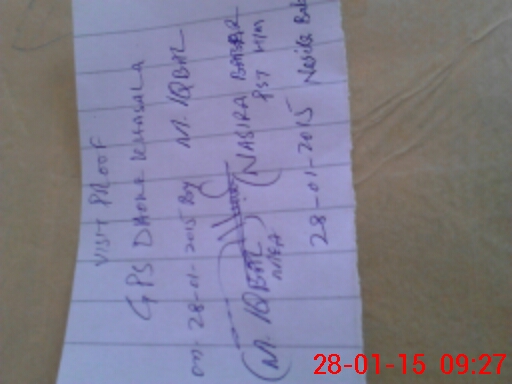 VISIT PROOF
GPS DHOKE
on 28-01-2015 By M. IQBAL
(M. IQBAL)
(NASIRA BABAR
PST H/M
28-01-2015
28-01-15 09:27